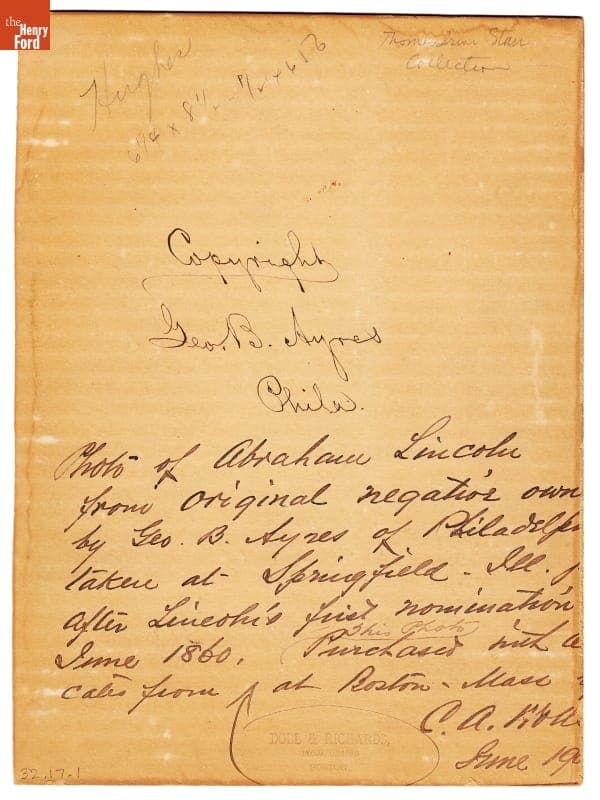 the
Henry
Ford
Hughes
Thomas Starr
Collection
Copyright
Geo. B. Ayres
Phila.
Photo of Abraham Lincoln
from original negative own
by Geo. B. Ayres of Philadelp
taken at Springfield - Ill. j
after Lincoln's first nomination
June 1860.
This Photo
Purchased with a
cates from at Boston - Mass
C. A.
DOLL & RICHARDS,
BOSTON.
June 19
32.17.1